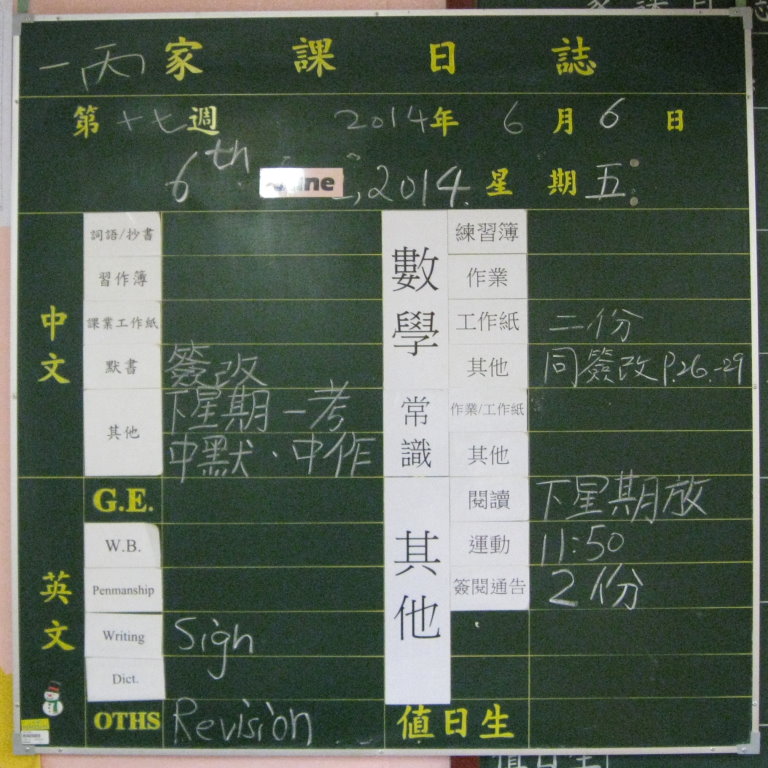 一丙家課日誌
第十七週 2014年 6月6日
6th June, 2014. 星期五
中文
詞語/抄書
習作簿
課業工作紙
默書 簽改
其他 下星期一考
中默、中作
英文
G.E.
W.B.
Penmanship
Writing Sign
Dict.
OTHS Revision
數學
練習簿
作業
工作紙 二份
其他 同簽改 P.26-29
常識
作業/工作紙
其他
其他
閱讀 下星期放
運動 11:50
簽閱通告 2份
值日生
值日生